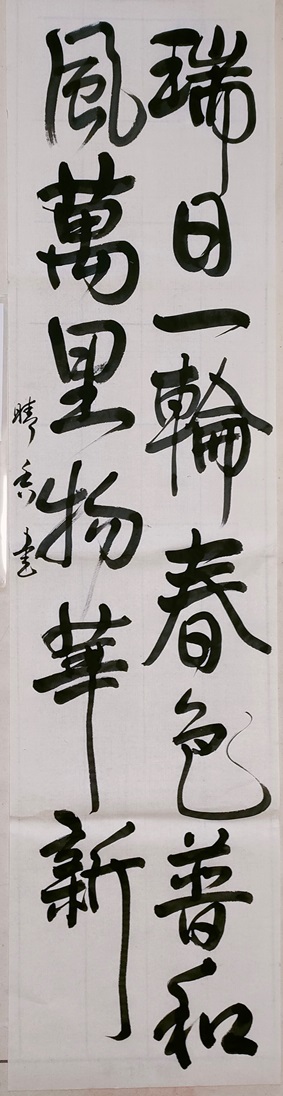 瑞日一輪春色普和
風萬里物華新
晴香書